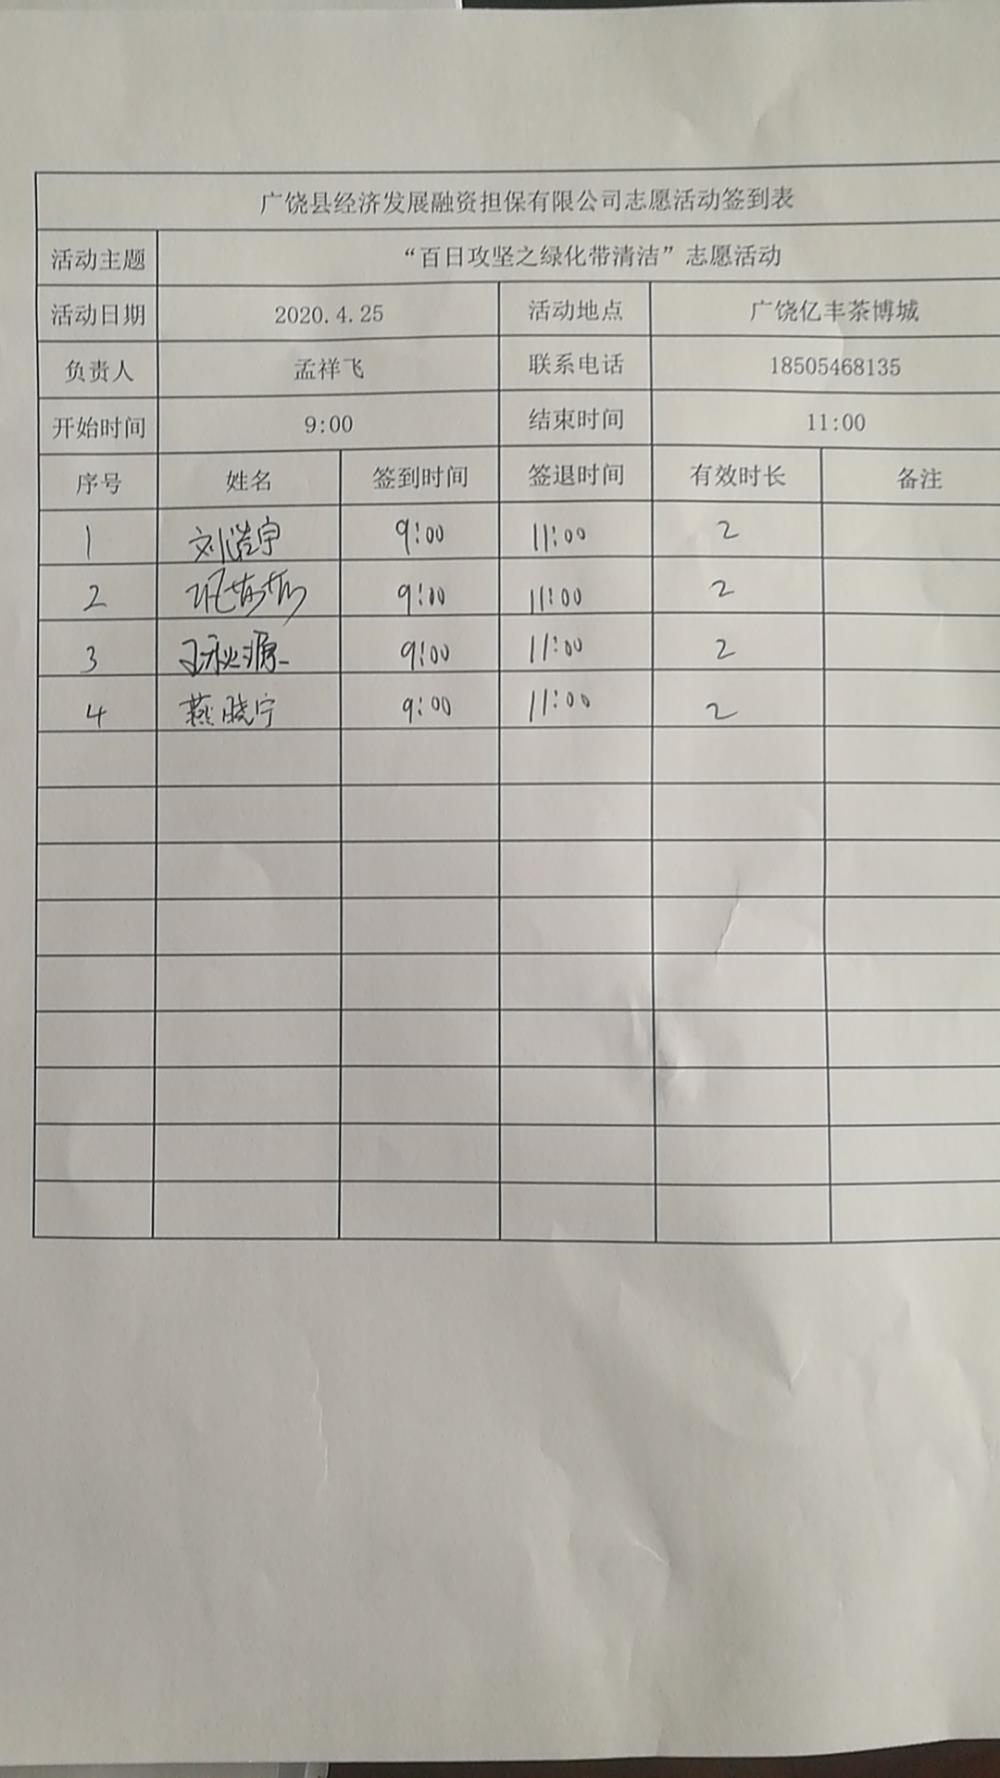 广饶县经济发展融资担保有限公司志愿活动签到表
活动主题 “百日攻坚之绿化带清洁”志愿活动
活动日期 2020.4.25 活动地点 广饶亿丰茶博城
负责人 孟祥飞 联系电话 18505468135
开始时间 9:00 结束时间 11:00
序号 姓名 签到时间 签退时间 有效时长 备注
1 刘浩宇 9:00 11:00 2
2 9:00 11:00 2
3 9:00 11:00 2
4 燕晓宁 9:00 11:00 2